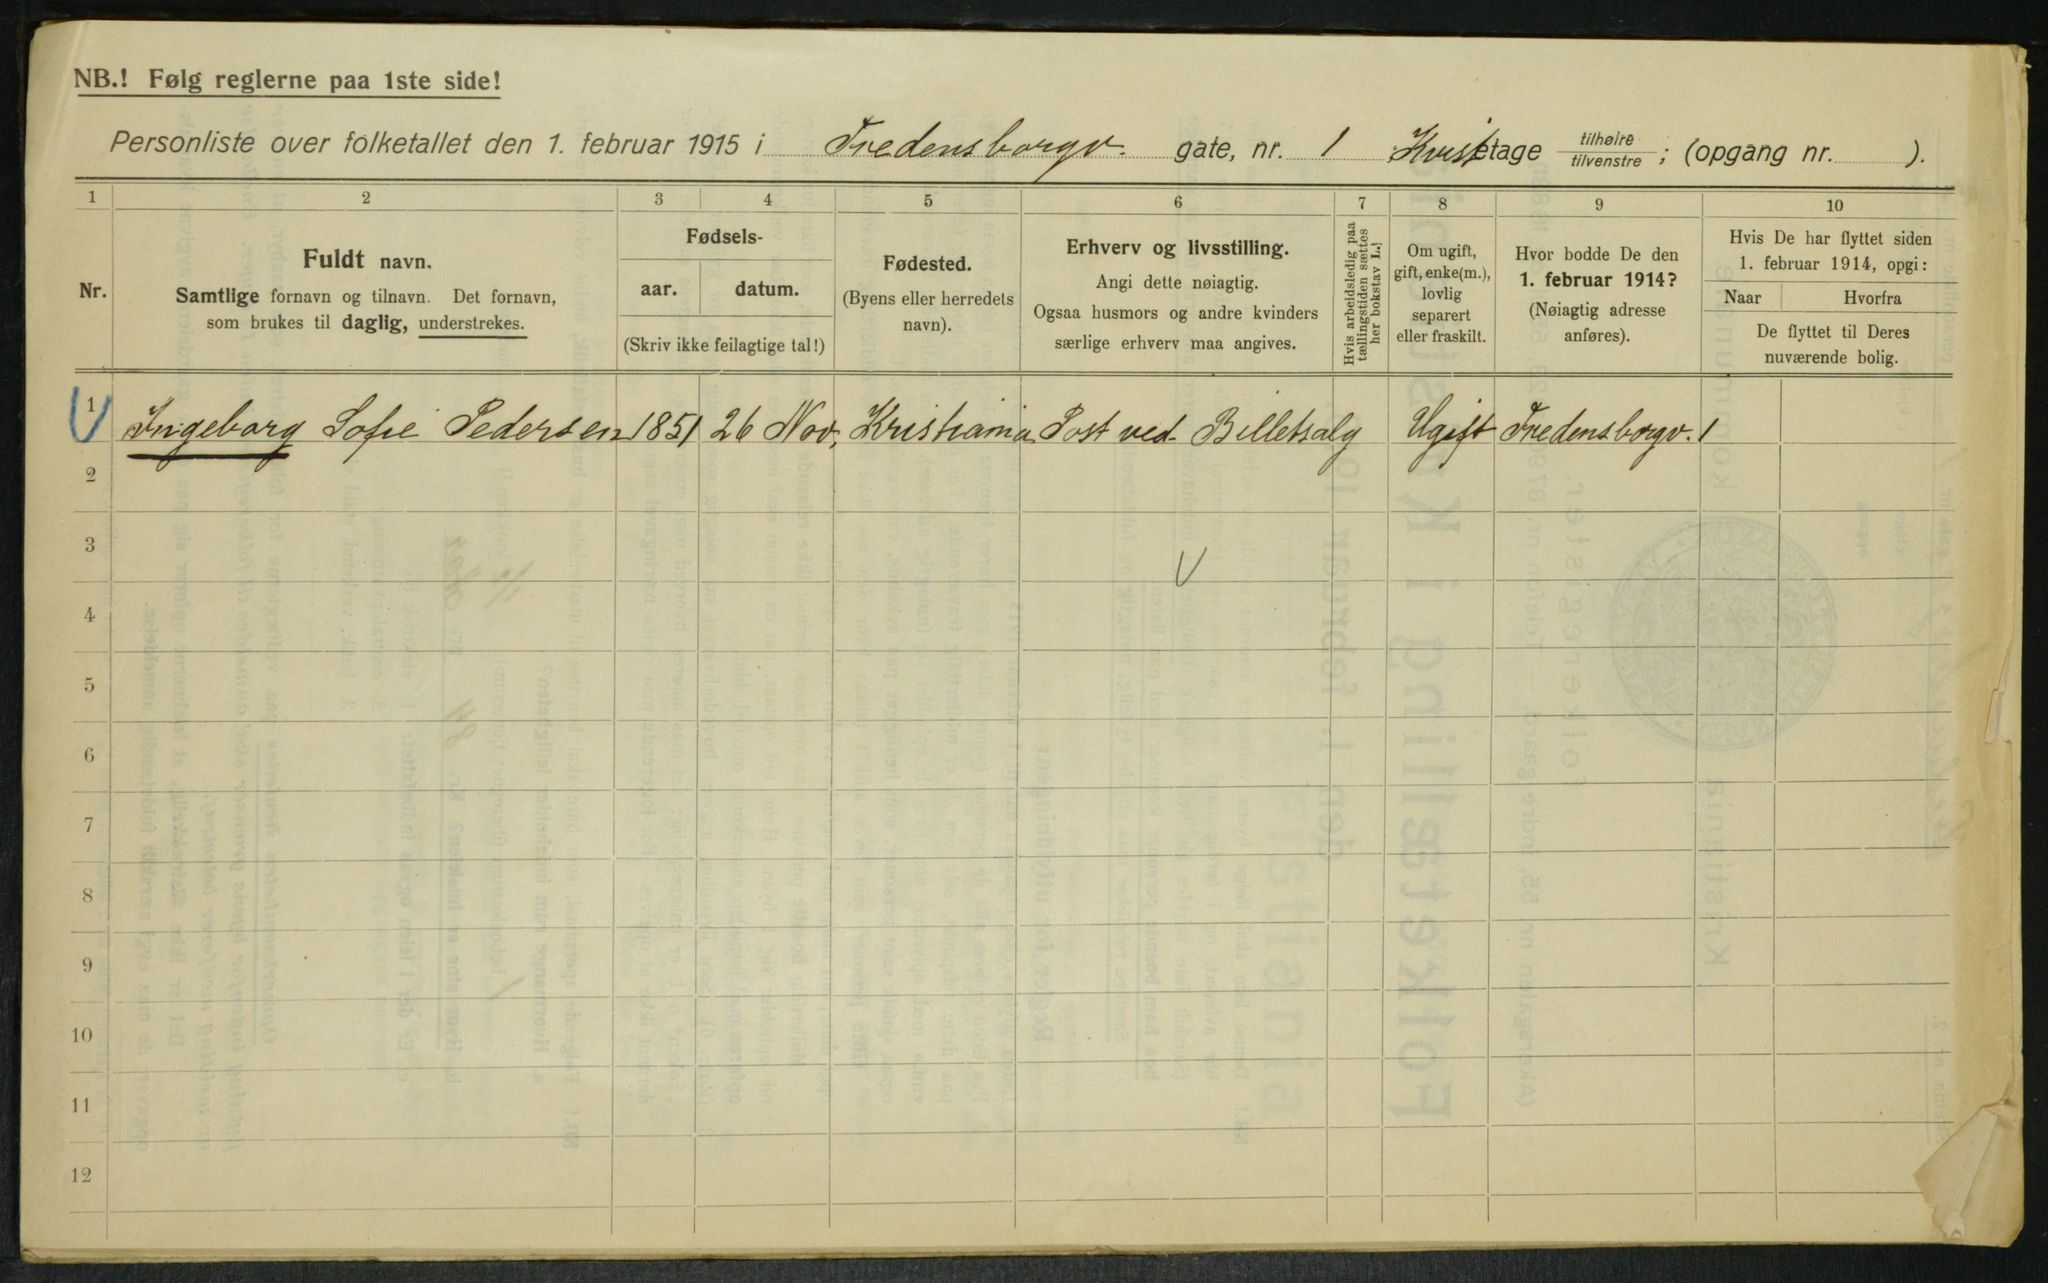 NB.! Følg reglerne paa 1ste side!
Personliste over folketallet den 1. februar 1915 i Fredensborgv. gate, nr. 1 Kvist etage tilhøire/tilvenstre; (opgang nr. ).
1 2 3 4 5 6 7 8 9 10
Nr.
Fuldt navn.
Samtlige fornavn og tilnavn. Det fornavn,
som brukes til daglig, understrekes.
Fødsels-
aar. datum.
(Skriv ikke feilagtige tal!)
Fødested.
(Byens eller herredets
navn).
Erhverv og livsstilling.
Angi dette nøiagtig.
Ogsaa husmors og andre kvinders
særlige erhverv maa angives.
Hvis arbeidsledig paa
tællingstiden sættes
her bokstav L.!
Om ugift,
gift, enke(m.),
lovlig
separert
eller fraskilt.
Hvor bodde De den
1. februar 1914?
(Nøiagtig adresse
anføres).
Hvis De har flyttet siden
1. februar 1914, opgi:
Naar Hvorfra
De flyttet til Deres
nuværende bolig.
1 Ingeborg Sofie Pedersen 1851 26 Nov, Kristiania Post ved Billetsalg Ugift Fredensborgv. 1
2
3
4
5
6
7
8
9
10
11
12